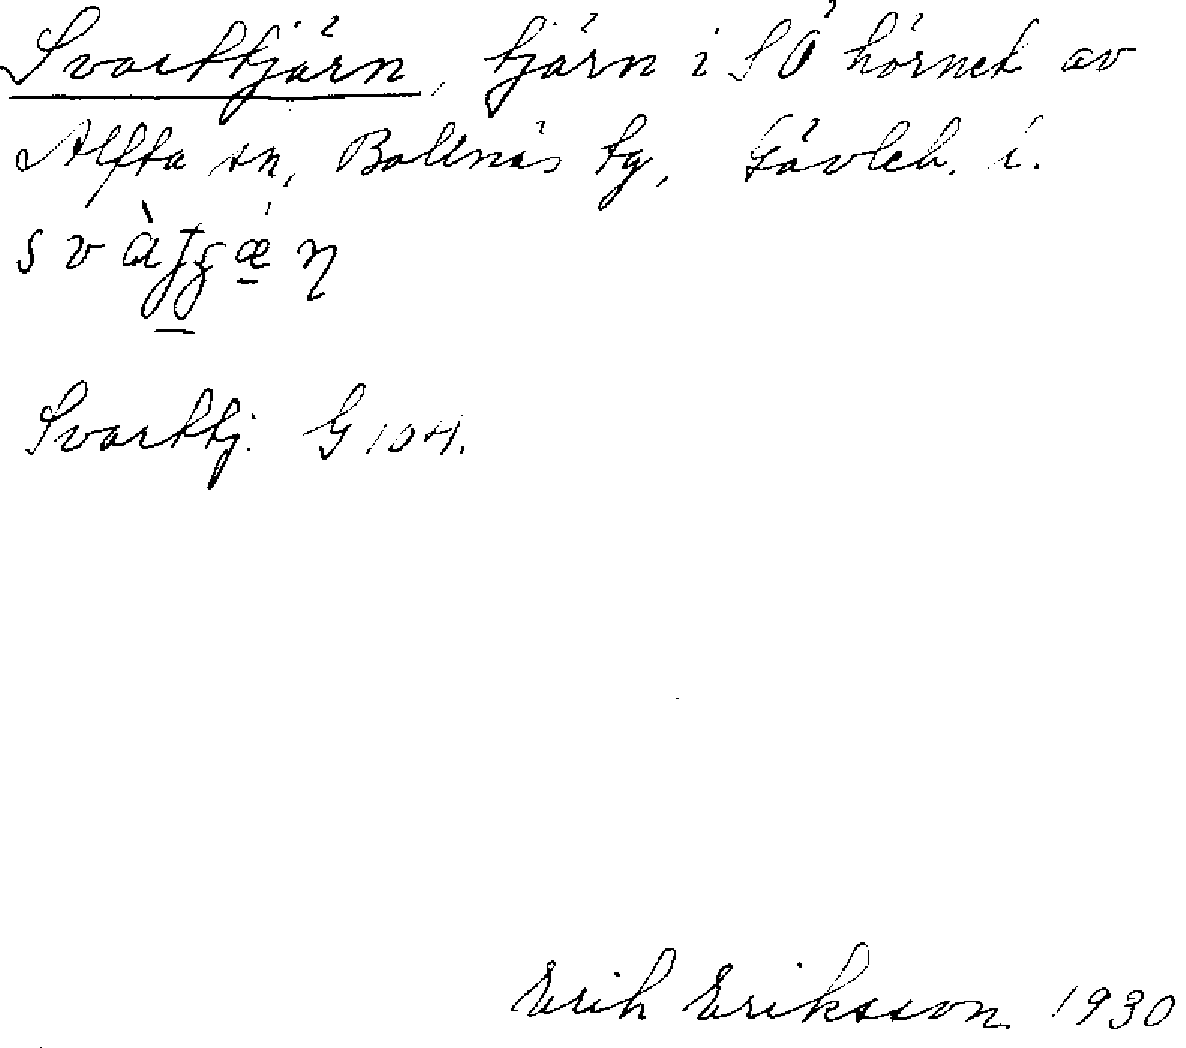 Svarttjärn, tjärn i SÖ hörnet av
Alfta sn, Bollnäs tg, Gävleb. l.
Svarttj. G 104.
Erik Eriksson 1930